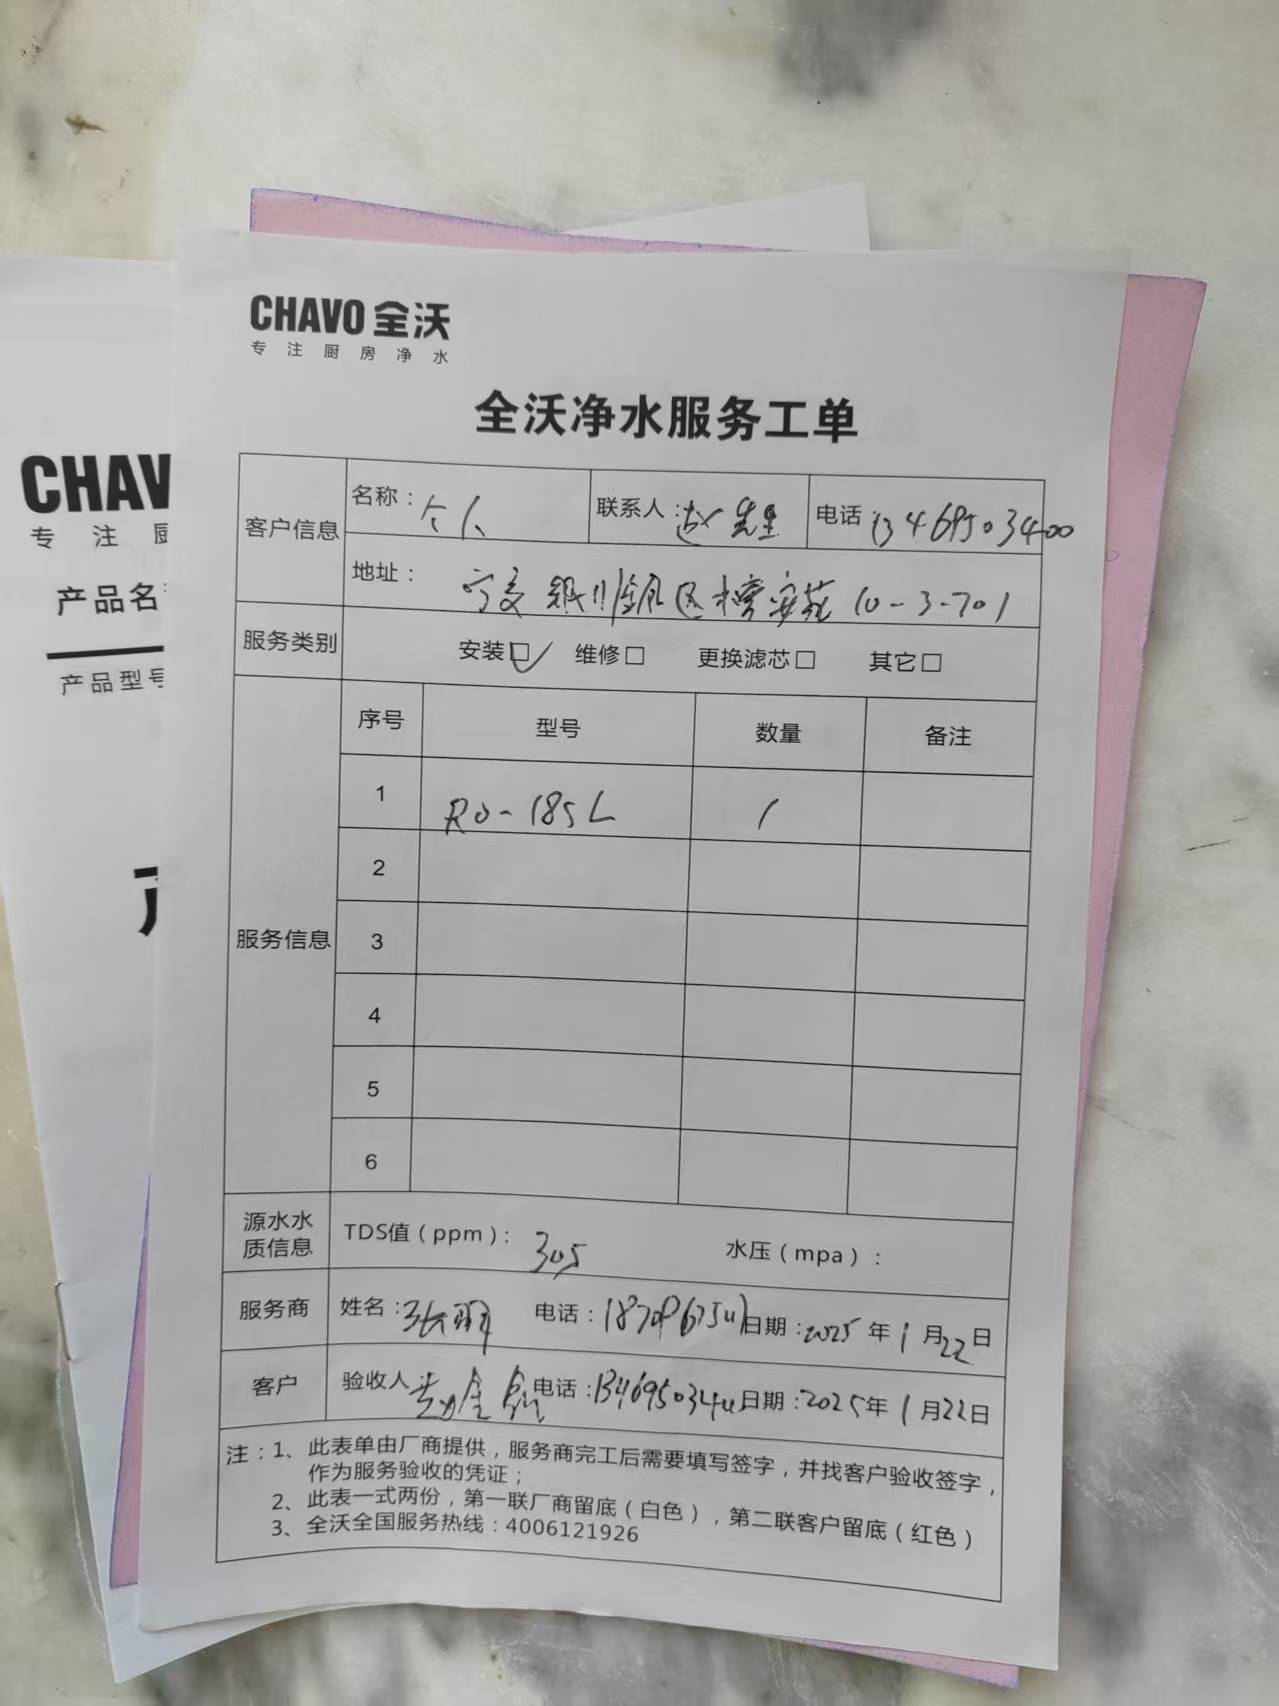 CHAVO 全沃
专注厨房净水
全沃净水服务工单
客户信息
名称：个人
联系人：赵先生
电话 13469503400
地址：宁夏银川金凤区 安苑 10-3-701
服务类别
安装☑ 维修□ 更换滤芯□ 其它□
服务信息
序号 型号 数量 备注
1 RO-185L 1
2
3
4
5
6
源水水质信息
TDS值（ppm）：305 水压（mpa）：
服务商
姓名：张 电话： 日期：2025年1月22日
客户
验收人 电话： 日期：2025年1月22日
注：1、此表单由厂商提供，服务商完工后需要填写签字，并找客户验收签字，
作为服务验收的凭证；
2、此表一式两份，第一联厂商留底（白色），第二联客户留底（红色）
3、全沃全国服务热线：4006121926
CHAV
专注
产品名
产品型号